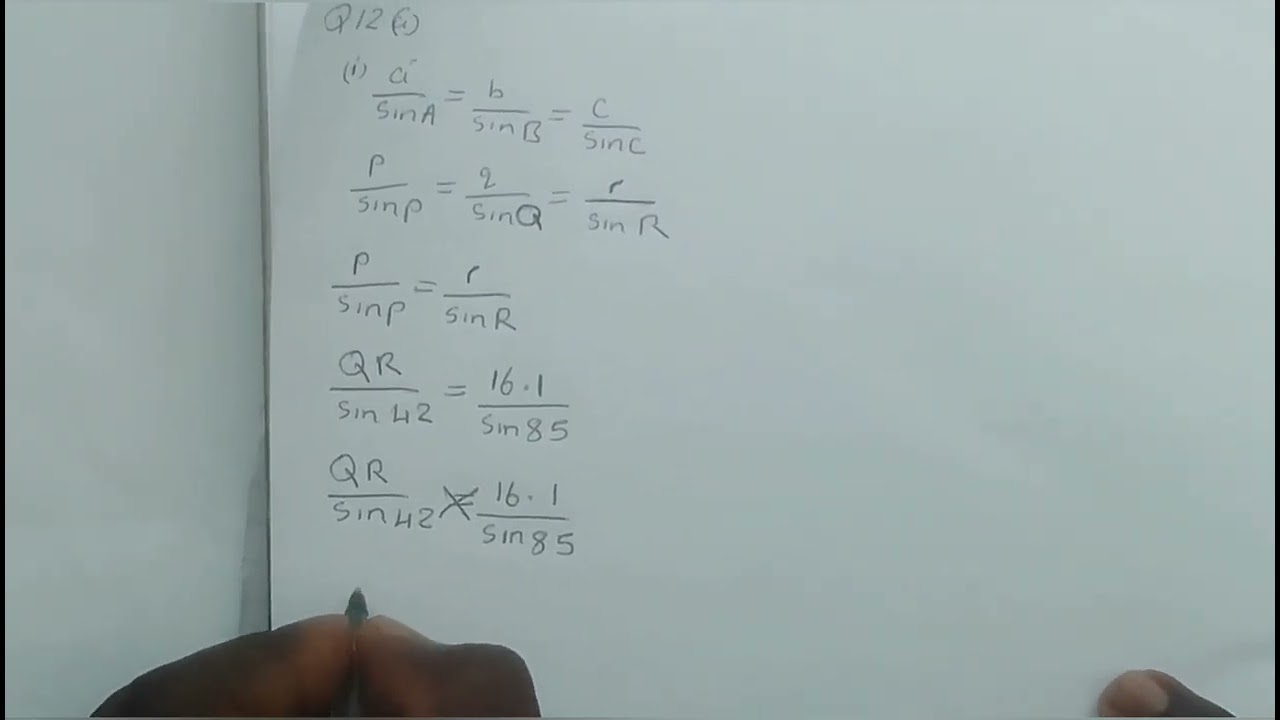 Q12(i)
(i) a/sinA = b/sinB = c/sinC
p/sinp = q/sinQ = r/sinR
p/sinp = r/sinR
QR/sin42 = 16.1/sin85
QR/sin42 = 16.1/sin85